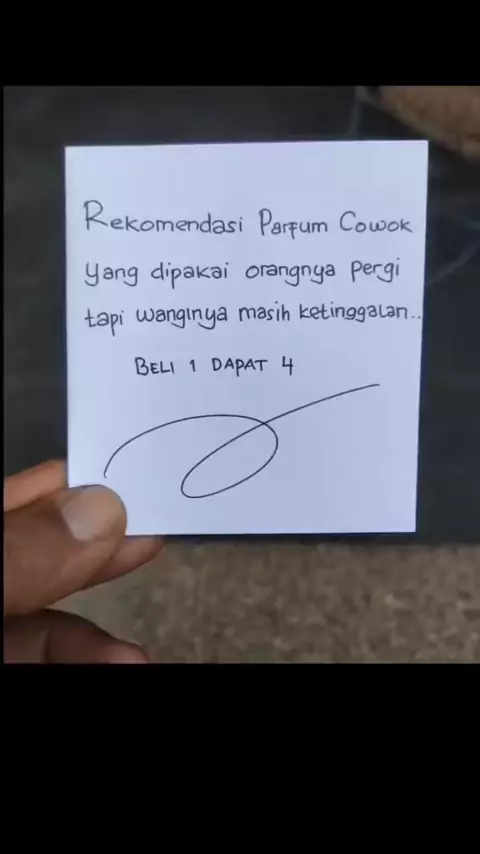 Rekomendasi Parfum Cowok
yang dipakai orangnya pergi
tapi wanginya masih ketinggalan..
BELI 1 DAPAT 4